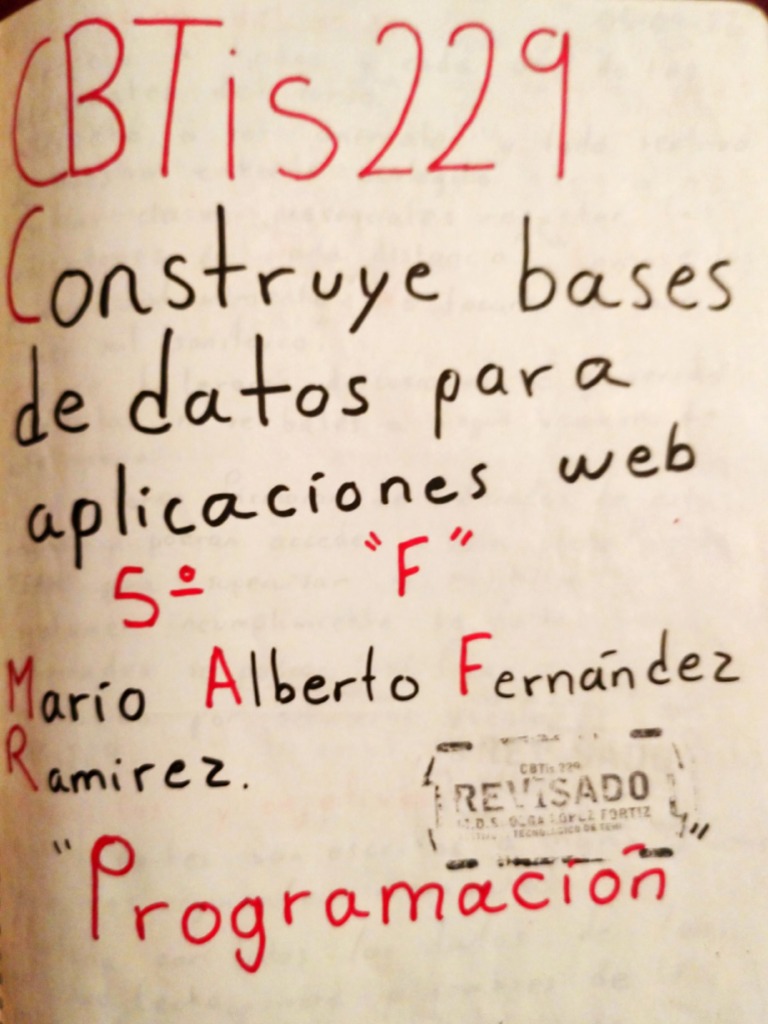 CBTis 229
Construye bases
de datos para
aplicaciones web
5º "F"
Mario Alberto Fernández
Ramirez.
CBTis 229
REVISADO
OLGA LÓPEZ FORTIZ
"Programación"